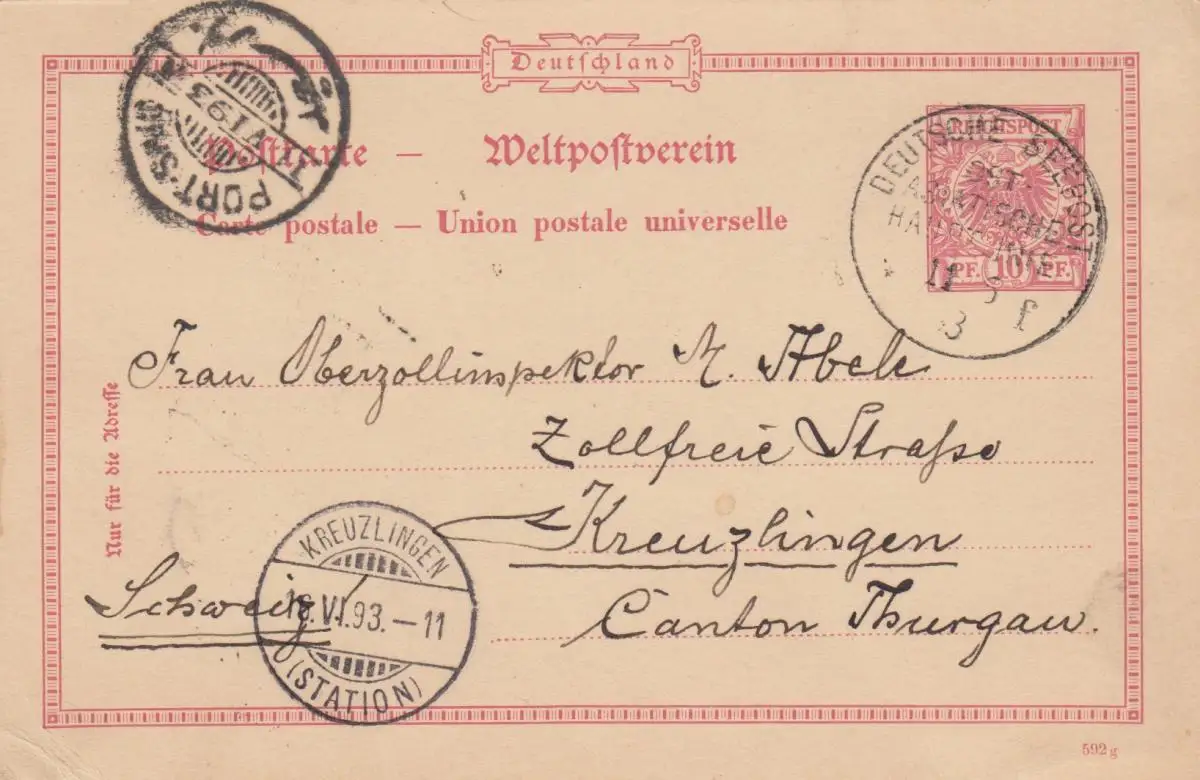 Deutschland
Postkarte — Weltpostverein
Carte postale — Union postale universelle
PORT-SAID
VI 93
REICHSPOST
PF. 10 PF.
DEUTSCHE SEEPOST
OST-
ASIATISCHE
HAUPT-LINIE
11
f
Frau Oberzollinspektor Abele
Zollfreie Straſse
Kreuzlingen
Schweiz
Canton Thurgau.
Nur für die Adresse
KREUZLINGEN
VI.93.–11
(STATION)
592 g